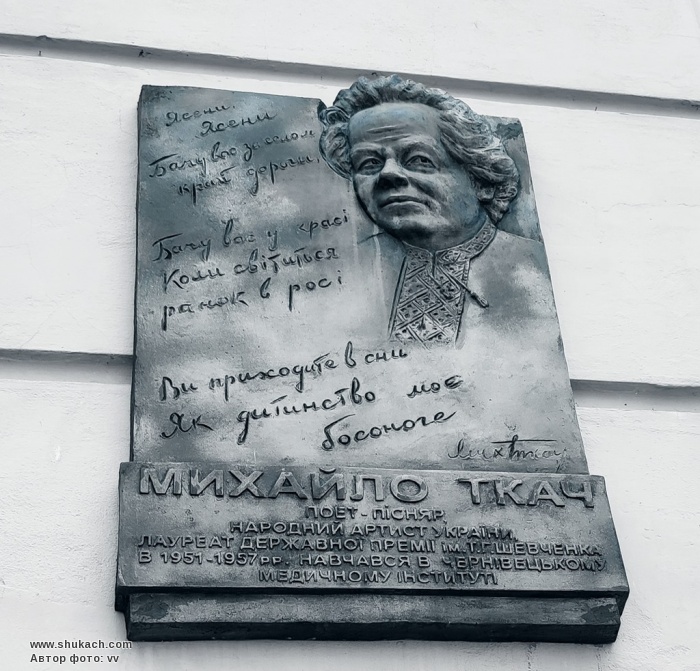 Ясени,
Ясени
Бачу вас за селом
край дороги,
Бачу вас у красі
Коли світиться
ранок в росі
Ви приходите в сни
Як дитинство моє
босоноге
МИХАЙЛО ТКАЧ
ПОЕТ-ПІСНЯР,
НАРОДНИЙ АРТИСТ УКРАЇНИ,
ЛАУРЕАТ ДЕРЖАВНОЇ ПРЕМІЇ ІМ.Т.Г.ШЕВЧЕНКА
В 1951-1957рр. НАВЧАВСЯ В ЧЕРНІВЕЦЬКОМУ
МЕДИЧНОМУ ІНСТИТУТІ
www.shukach.com
Автор фото: vv